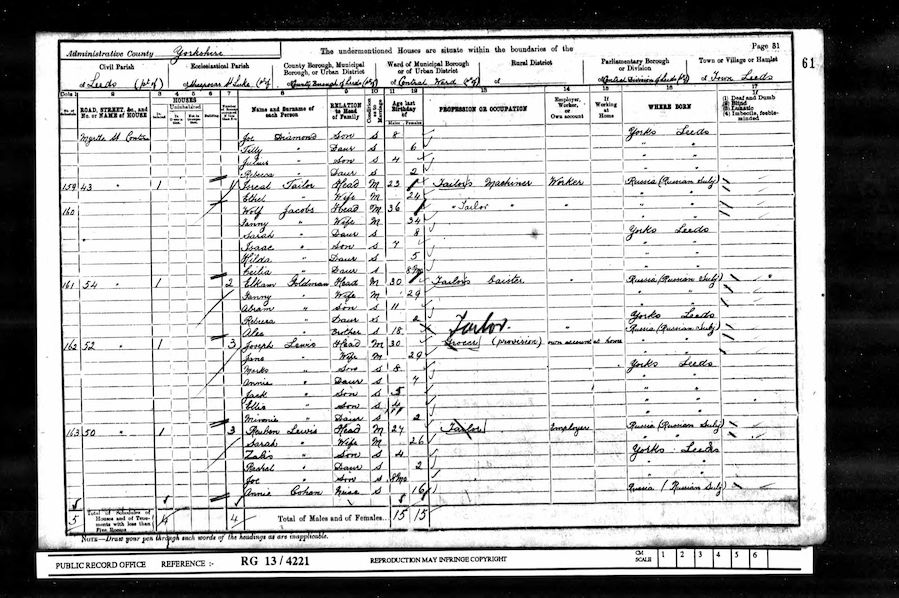 Administrative County Yorkshire
The undermentioned Houses are situate within the boundaries of the
Page 31
61
Civil Parish
Ecclesiastical Parish
County Borough, Municipal Borough, or Urban District
Ward of Municipal Borough or of Urban District
Rural District
Parliamentary Borough or Division
Town or Village or Hamlet
of Leeds (pt of)
of Leeds
of Central Ward (pt of)
of Town Leeds
ROAD, STREET, &c., and No. or NAME of HOUSE
HOUSES
Name and Surname of each Person
RELATION to Head of Family
Condition as to Marriage
Age last Birthday of
PROFESSION OR OCCUPATION
Employer, Worker, or Own account
If Working at Home
WHERE BORN
(1) Deaf and Dumb
(2) Blind
(3) Lunatic
(4) Imbecile, feeble-minded
Myrtle St Contd Joe Diamond Son S 8 Yorks Leeds
Tilly " Daur S 6 " "
Julius " Son S 4 " "
Rebecca " Daur S 2 " "
159 43 " 1 Tailor Head M 23 Tailor's Machiner Worker Russia (Russian Subj)
Ethel " Wife M 24 " "
160 Wolf Jacobs Head M 36 " Tailor " " "
Fanny " Wife M 34 " "
Sarah " Daur S 8 Yorks Leeds
Isaac " Son S 7 " "
Hilda " Daur S 5 " "
Cecilia " Daur S 8 Mo " "
161 54 " 1 2 Goldman Head M 30 Tailor's " Russia (Russian Subj)
Fanny " Wife M 29 " "
Abram " Son S 11 " "
Rebecca " Daur S 2 Yorks Leeds
" Brother S 18 Tailor. " Russia (Russian Subj)
162 52 " 1 3 Joseph Lewis Head M 30 Grocer (provision) own account at home " "
Jane " Wife M 29 " "
Marks " Son S 8 Yorks Leeds
Annie " Daur S 7 " "
Jack " Son S 5 " "
Ellis " Son S 4 " "
Minnie " Daur S 2 " "
163 50 " 1 3 Reuben Lewis Head M 27 Tailor Employer Russia (Russian Subj)
Sarah " Wife M 26 " "
" Son S 4 Yorks Leeds
Rachel " Daur S 2 " "
Joe " Son S 8 Mo " "
Annie Cohan S 16 Russia (Russian Subj)
5 Total of Schedules of Houses and of Tenements with less than Five Rooms 4 4 Total of Males and of Females... 15 15
NOTE—Draw your pen through such words of the headings as are inapplicable.
PUBLIC RECORD OFFICE REFERENCE :- RG 13/4221 REPRODUCTION MAY INFRINGE COPYRIGHT CM SCALE 1 2 3 4 5 6